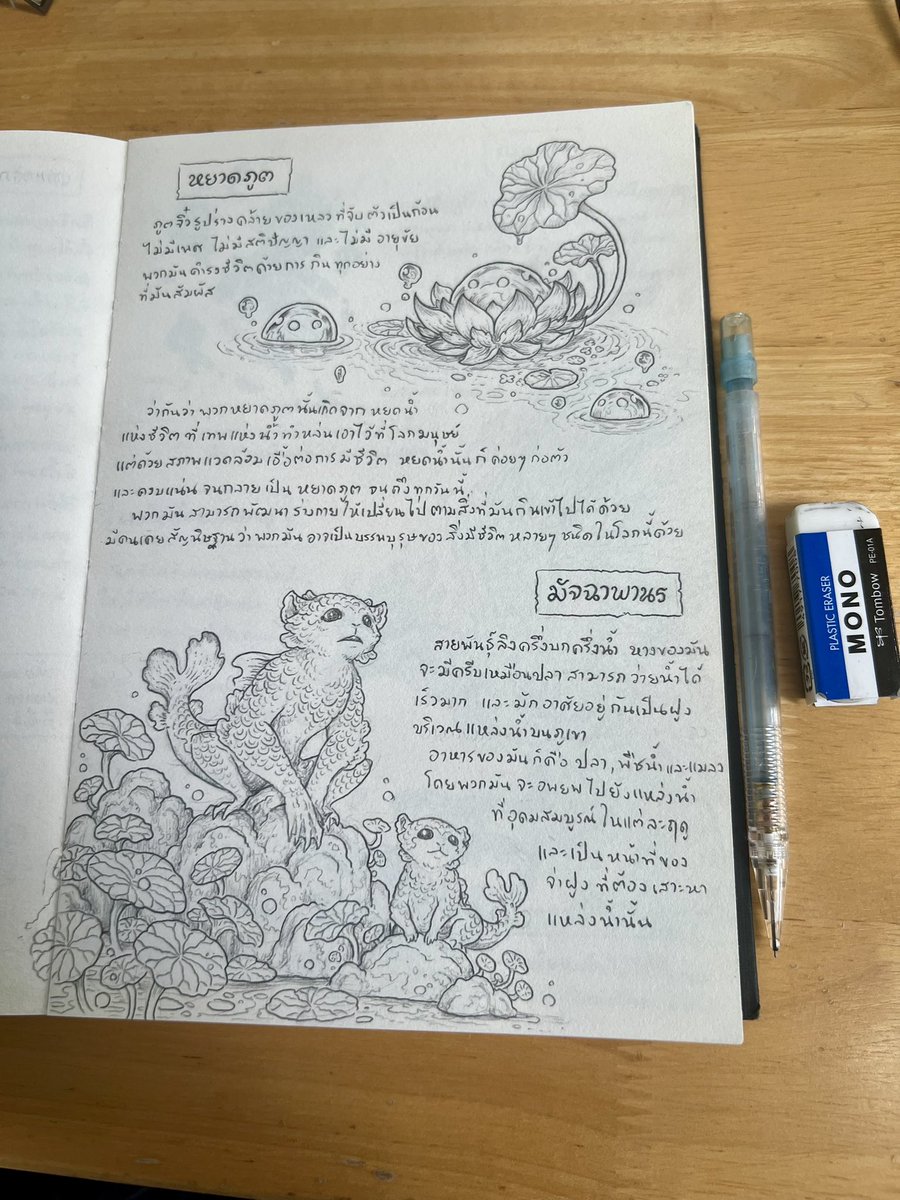 หยาดภูต
ภูตจิ๋วรูปร่างคล้ายของเหลวที่จับตัวเป็นก้อน
ไม่มีเพศ ไม่มีสติปัญญา และไม่มีอายุขัย
พวกมันดำรงชีวิตด้วยการกินทุกอย่าง
ที่มันสัมผัส
ว่ากันว่าพวกหยาดภูตนั้นเกิดจากหยดน้ำ
แห่งชีวิตที่เทพแห่งน้ำทำหล่นเอาไว้ที่โลกมนุษย์
แต่ด้วยสภาพแวดล้อมเอื้อต่อการมีชีวิต หยดน้ำนั้นก็ค่อยๆก่อตัว
และควบแน่นจนกลายเป็นหยาดภูตจนถึงทุกวันนี้
พวกมันสามารถพัฒนาร่างกายให้เปลี่ยนไปตามสิ่งที่มันกินเข้าไปได้ด้วย
มีคนเคยสัญนิษฐานว่าพวกมันอาจเป็นบรรพบุรุษของสิ่งมีชีวิตหลายๆชนิดในโลกนี้ด้วย
มัจฉาพานร
สายพันธุ์ลิงครึ่งบกครึ่งน้ำ หางของมัน
จะมีครีบเหมือนปลา สามารถว่ายน้ำได้
เร็วมาก และมักอาศัยอยู่กันเป็นฝูง
บริเวณแหล่งน้ำบนภูเขา
อาหารของมันก็คือ ปลา, พืชน้ำ และแมลง
โดยพวกมันจะอพยพไปยังแหล่งน้ำ
ที่อุดมสมบูรณ์ในแต่ละฤดู
และเป็นหน้าที่ของ
จ่าฝูงที่ต้องเสาะหา
แหล่งน้ำนั้น
PLASTIC ERASER
MONO
Tombow PE-01A